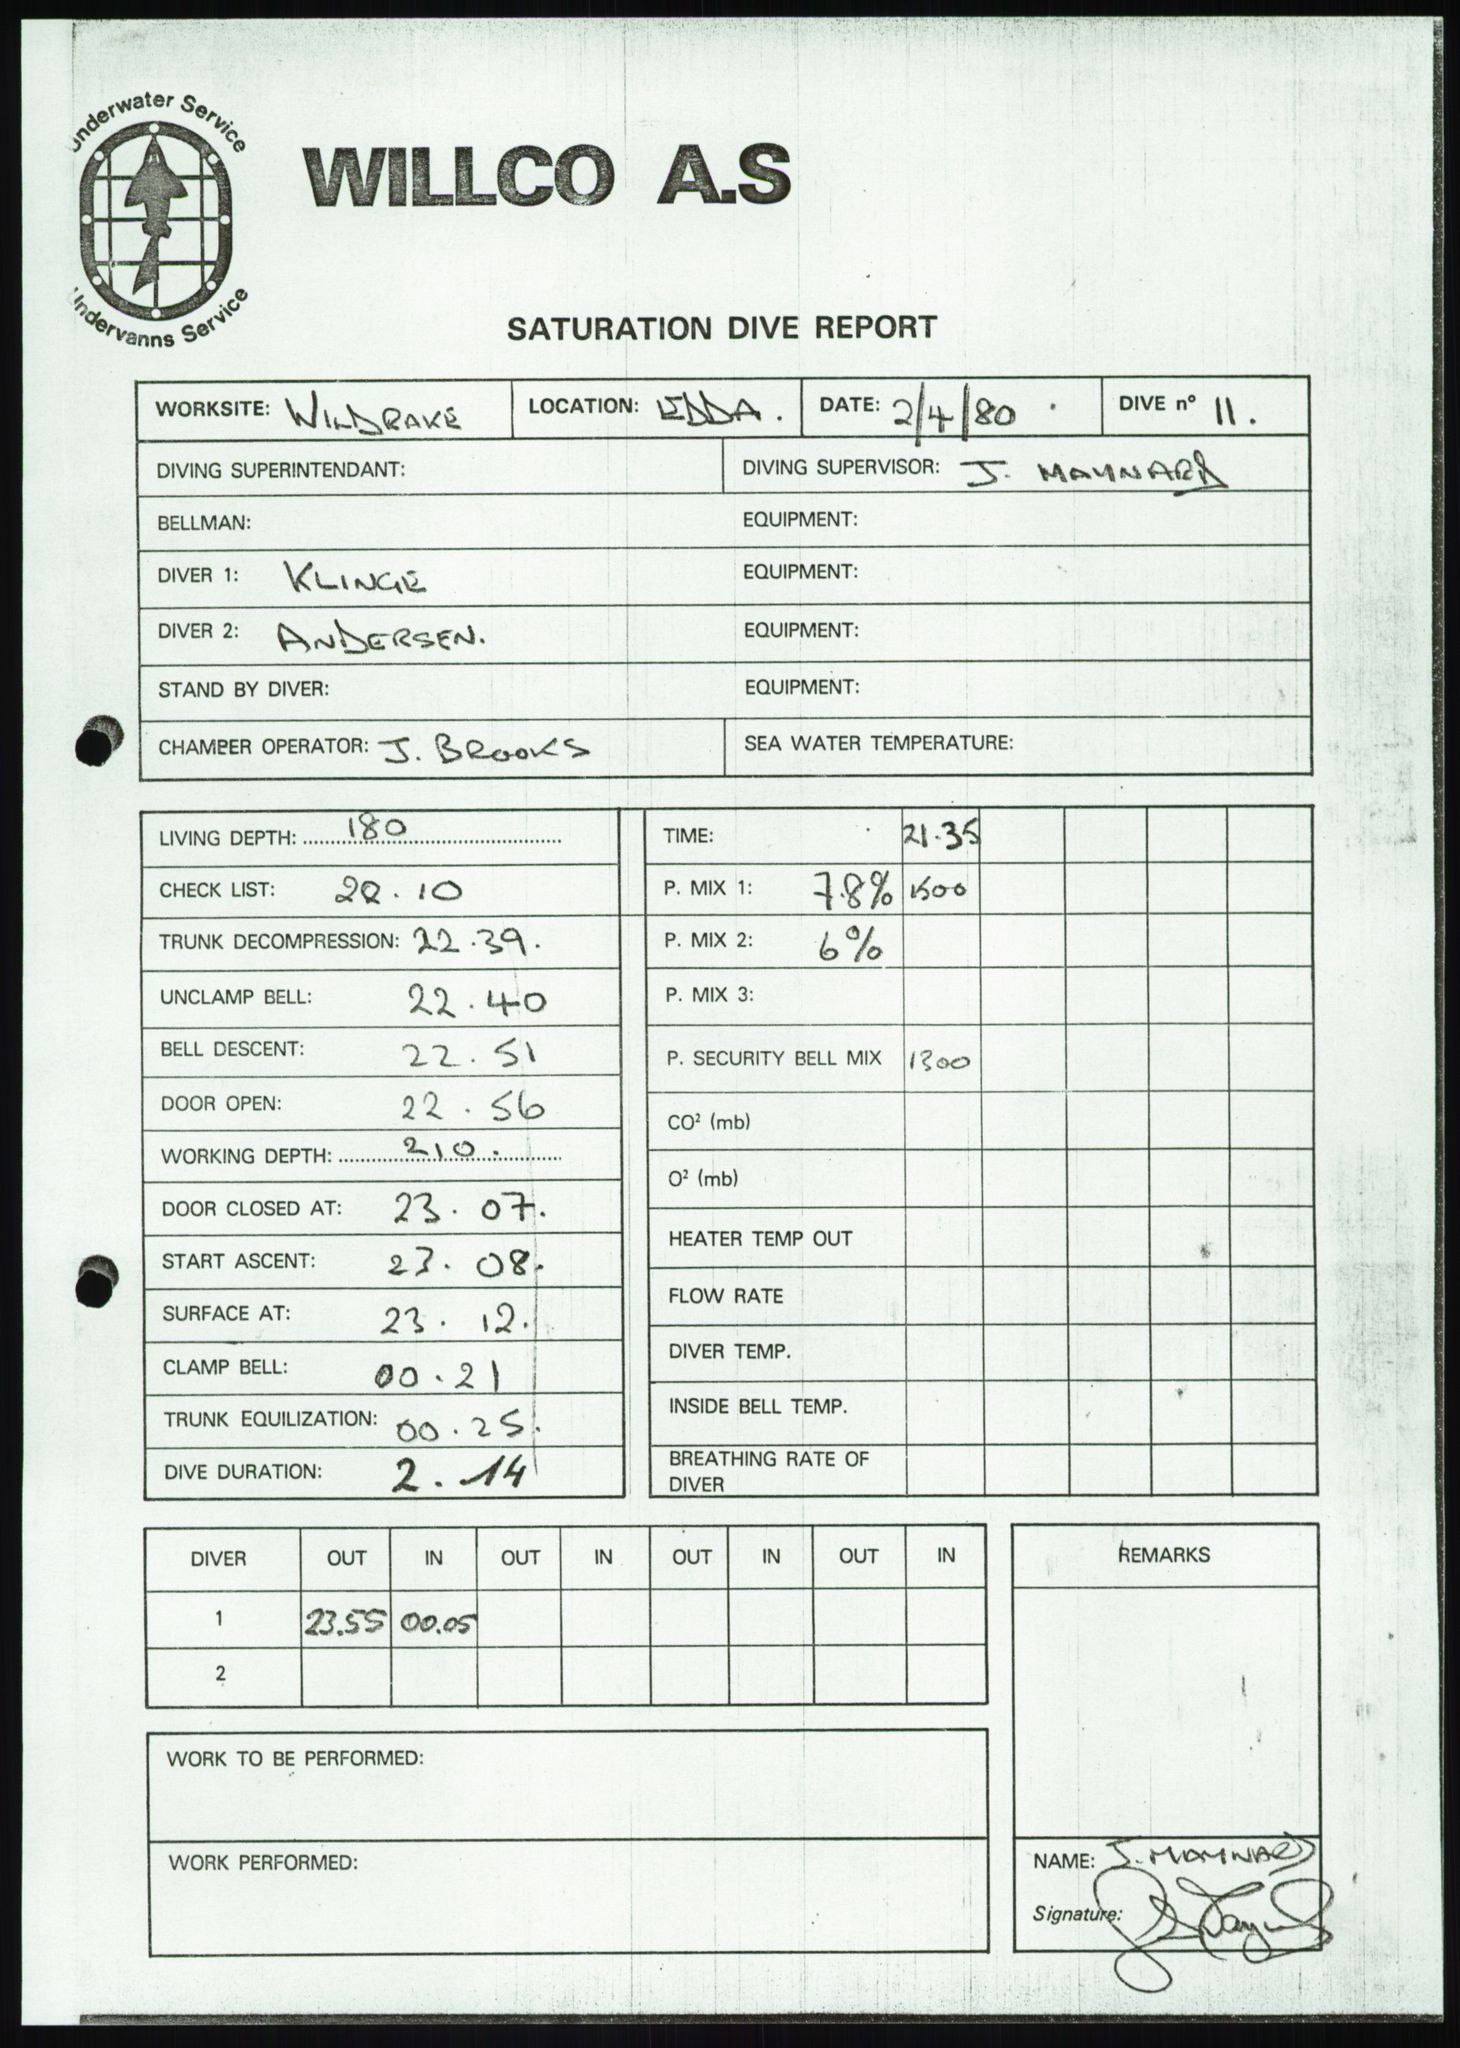 Underwater Service
WILLCO A.S
Undervanns Service
SATURATION DIVE REPORT
WORKSITE: WILDRAKE LOCATION: EDDA. DATE: 2/4/80 DIVE nº 11.
DIVING SUPERINTENDANT: DIVING SUPERVISOR: J. MAYNARD
BELLMAN: EQUIPMENT:
DIVER 1: KLINGE EQUIPMENT:
DIVER 2: ANDERSEN. EQUIPMENT:
STAND BY DIVER: EQUIPMENT:
CHAMBER OPERATOR: J. BROOKS SEA WATER TEMPERATURE:
LIVING DEPTH: 180
CHECK LIST: 22.10
TRUNK DECOMPRESSION: 22.39.
UNCLAMP BELL: 22.40
BELL DESCENT: 22.51
DOOR OPEN: 22.56
WORKING DEPTH: 210.
DOOR CLOSED AT: 23.07.
START ASCENT: 23.08.
SURFACE AT: 23.12.
CLAMP BELL: 00.21
TRUNK EQUILIZATION: 00.25.
DIVE DURATION: 2.14
TIME: 21.35
P. MIX 1: 7.8% 1500
P. MIX 2: 6%
P. MIX 3:
P. SECURITY BELL MIX 1300
CO² (mb)
O² (mb)
HEATER TEMP OUT
FLOW RATE
DIVER TEMP.
INSIDE BELL TEMP.
BREATHING RATE OF
DIVER
DIVER OUT IN OUT IN OUT IN OUT IN
1 23.55 00.05
2
REMARKS
WORK TO BE PERFORMED:
WORK PERFORMED:
NAME: J. MAYNARD
Signature: